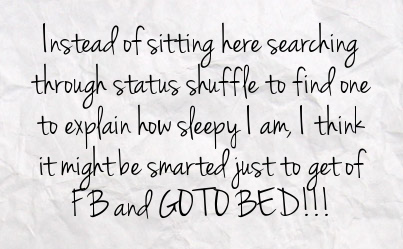 Instead of sitting here searching
through status shuffle to find one
to explain how sleepy I am, I think
it might be smarted just to get of
FB and GO TO BED!!!